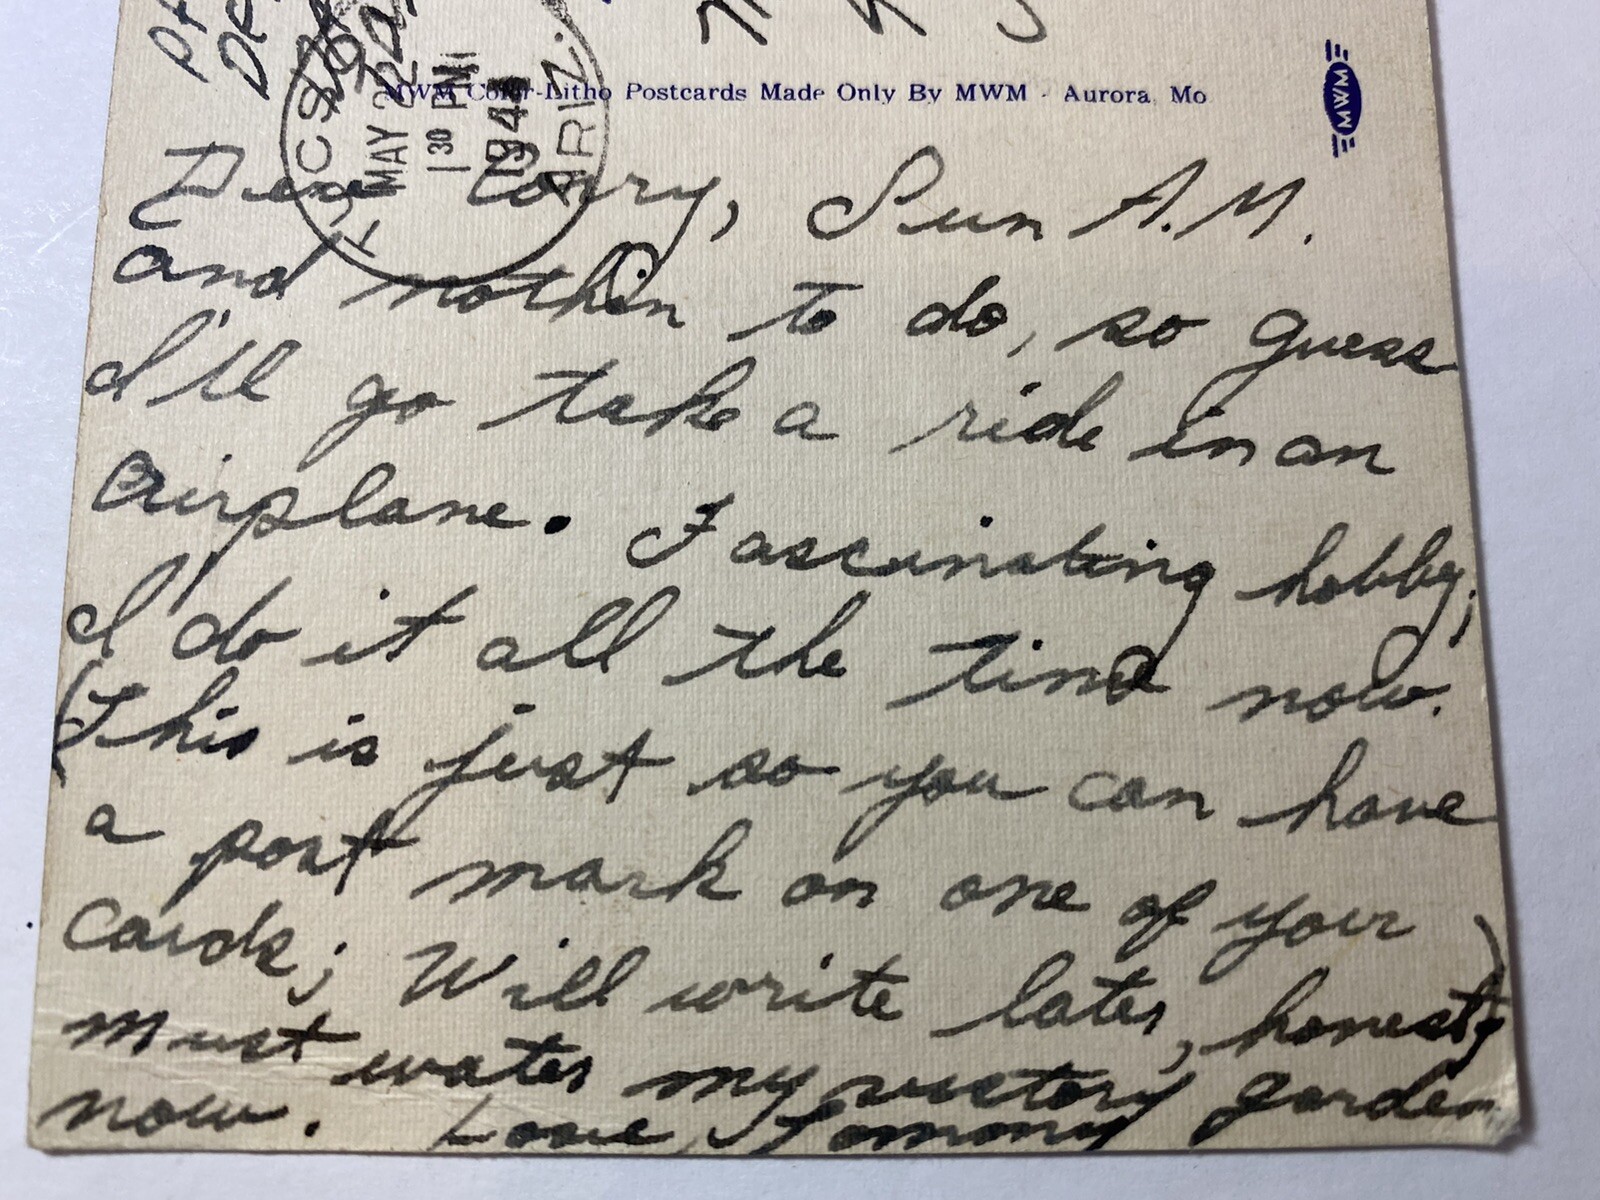 MWM Color-Litho Postcards Made Only By MWM - Aurora, Mo
MWM
TUCSON ARIZ.
MAY 22
1 30 PM
1944
Dear Corry, Sun A.M.
and nothin to do, so guess
I'll go take a ride in an
airplane. Fascinating hobby;
I do it all the time now.
(This is just so you can have
a post mark on one of your
cards; Will write later, honest)
Must water my victory garden
now. Love, Tommy